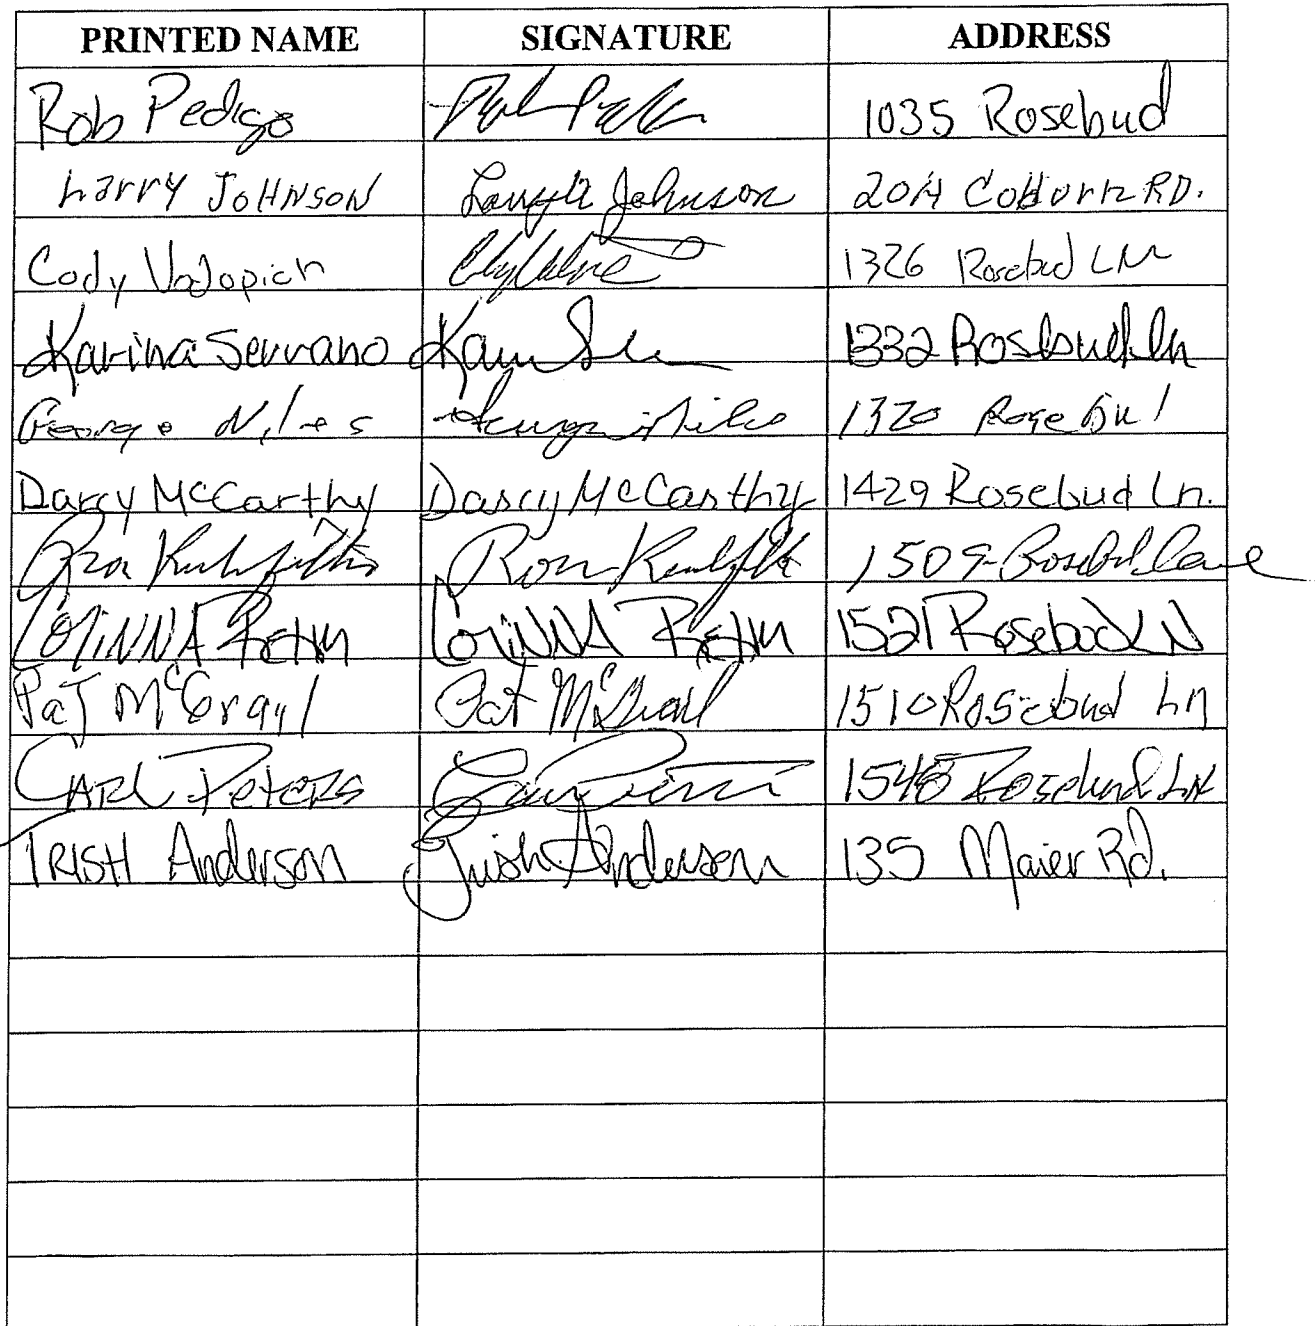 PRINTED NAME SIGNATURE ADDRESS
Rob Pedigo 1035 Rosebud
Larry JOHNSON Larry Johnson RD.
Cody 1326 Rosebud LN
Karina Serrano 1332 Rosebud Ln
George Niles George Niles 1320 Rosebud
Darcy McCarthy Darcy McCarthy 1429 Rosebud Ln.
Ron Ron 1509 Rosebud Lane
CORINNA CORINNA 1521 Rosebud LN
Pat McGrail Pat McGrail 1510 Rosebud Ln
CARL Peters Rosebud LN
TRISH Anderson Trish Anderson 135 Maier Rd.